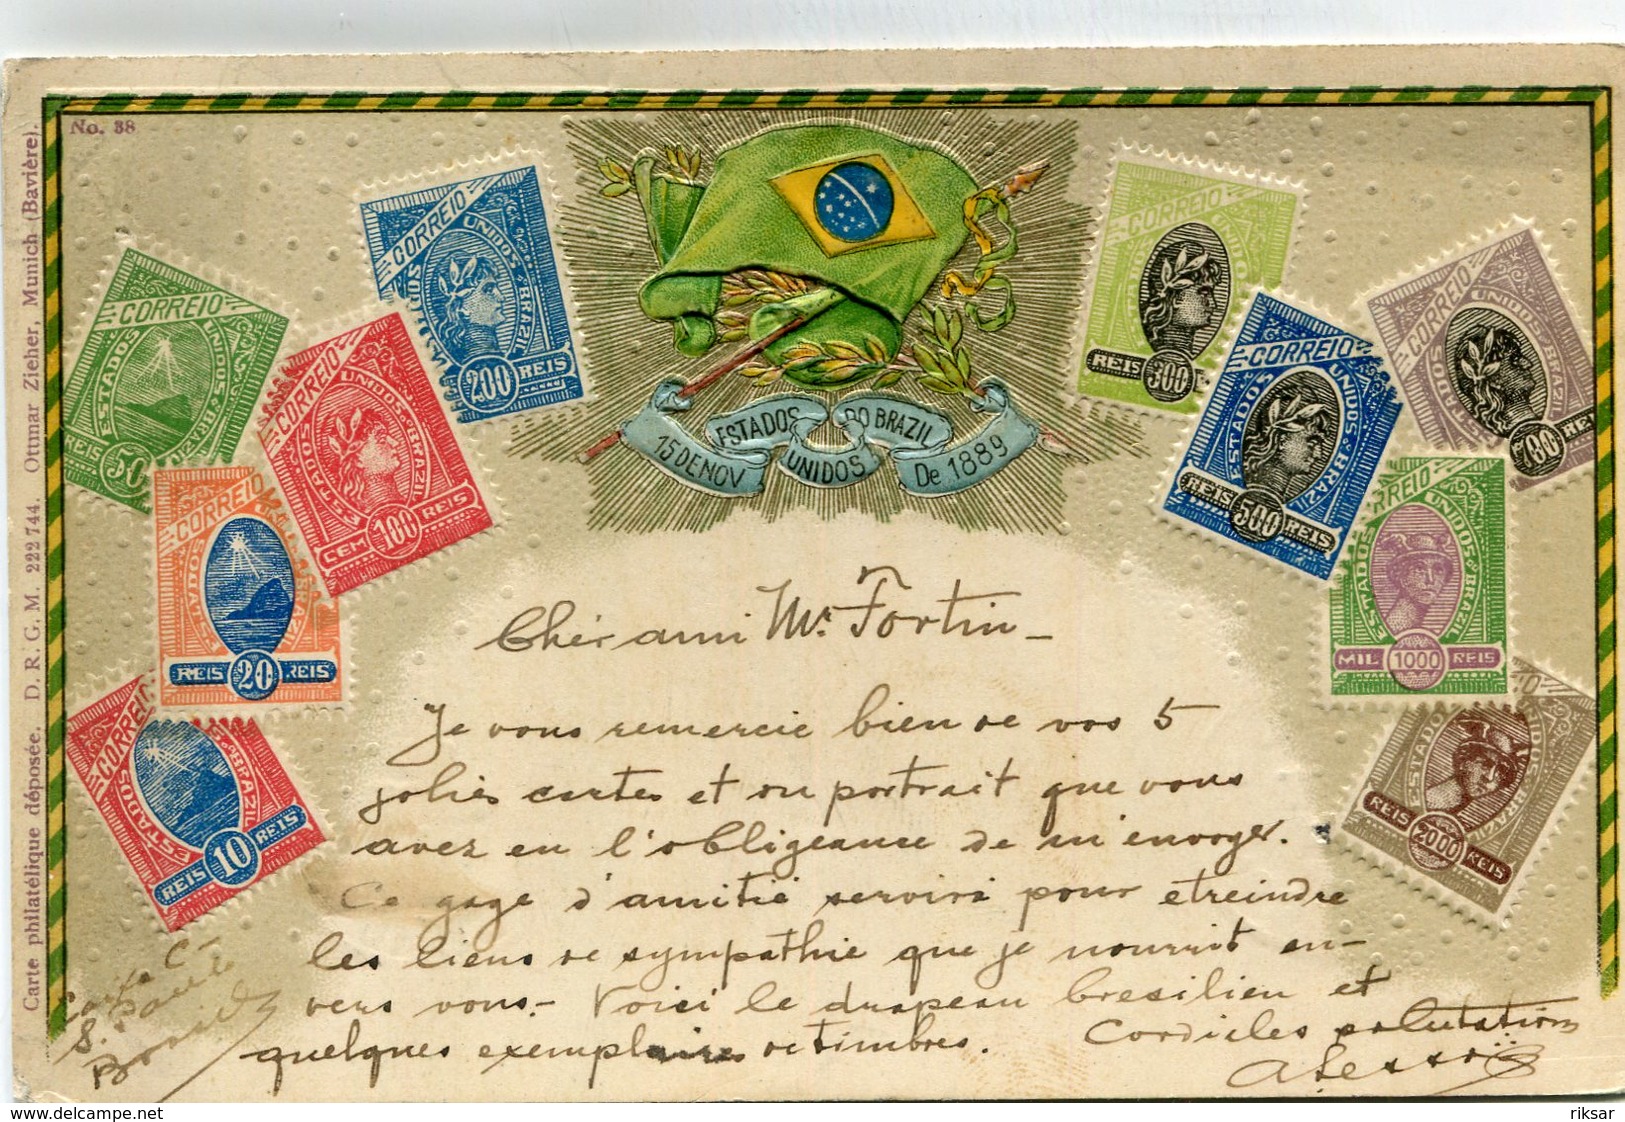 No. 38
Carte philatélique déposée. D. R. G. M. 222 744. Ottmar Zieher, Munich (Bavière).
CORREIO
ESTADOS UNIDOS DO BRAZIL
REIS 50
CORREIO
UNIDOS DO BRAZIL
200 REIS
CORREIO
ESTADOS UNIDOS DO BRAZIL
CEM 100 REIS
CORREIO
ESTADOS BRAZIL
REIS 20 REIS
CORREIO
ESTADOS BRAZIL
REIS 10 REIS
15 DE NOV ESTADOS UNIDOS DO BRAZIL De 1889
CORREIO
REIS 300
CORREIO
ESTADOS UNIDOS DO BRAZIL
REIS 500 REIS
CORREIO
UNIDOS DO BRAZIL
700 REI
REIO
ESTADOS UNIDOS DO BRAZIL
MIL 1000 REIS
ESTADO
REIS 2000 REIS
Chér ami Mr Fortin –
Je vous remercie bien de vos 5
joliés cartes et du portrait que vous
avez eu l'obligeance de m'envoyer.
Ce gage d'amitié servirá pour etreindre
les liens de sympathie que je nourrit en-
vers vous. – Voici le drapeau bresilien et
quelques exemplaires de timbres. Cordiales salutations
S. Paulo
Brasil